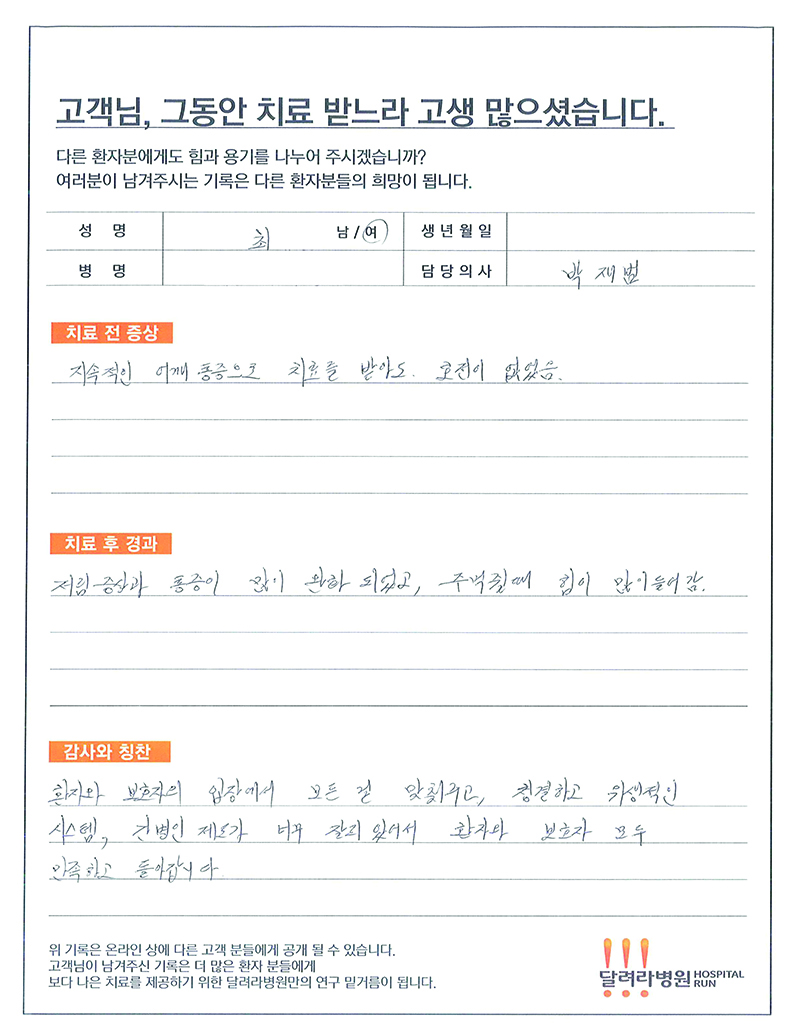 고객님, 그동안 치료 받느라 고생 많으셨습니다.
다른 환자분에게도 힘과 용기를 나누어 주시겠습니까?
여러분이 남겨주시는 기록은 다른 환자분들의 희망이 됩니다.
성 명 최 남 / 여 생년월일
병 명 담당의사 박재범
치료 전 증상
지속적인 어깨통증으로 치료를 받아도. 호전이 없었음.
치료 후 경과
저림증상과 통증이 많이 완화 되었고, 주먹쥘때 힘이 많이들어감.
감사와 칭찬
환자와 보호자의 입장에서 모든 걸 맞춰주고, 청결하고 위생적인
시스템, 간병인 제도가 너무 잘되 있어서 환자와 보호자 모두
만족하고 돌아갑니다
위 기록은 온라인 상에 다른 고객 분들에게 공개 될 수 있습니다.
고객님이 남겨주신 기록은 더 많은 환자 분들에게
보다 나은 치료를 제공하기 위한 달려라병원만의 연구 밑거름이 됩니다.
달려라병원 HOSPITAL RUN